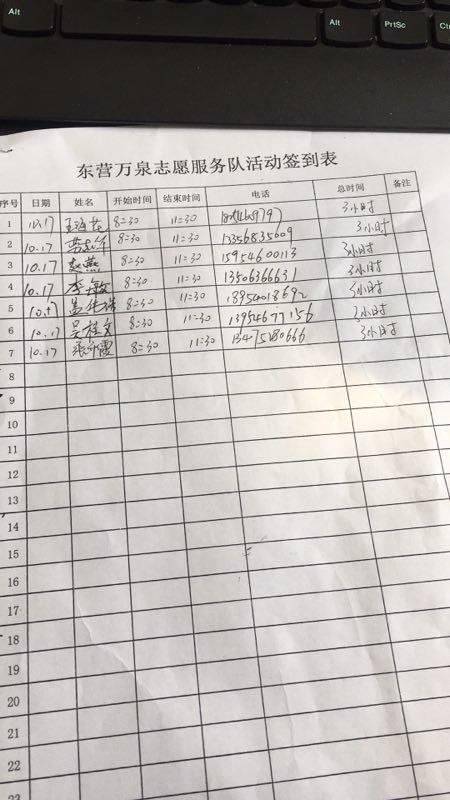 Alt
PrtSc
东营万泉志愿服务队活动签到表
序号 日期 姓名 开始时间 结束时间 电话 总时间 备注
1 10.17 8:30 11:30 3小时
2 10.17 8:30 11:30 13356835609 3小时
3 10.17 赵燕 8:30 11:30 15954600113 3小时
4 10.17 李敏 8:30 11:30 13506366631 3小时
5 10.17 8:30 11:30 18954018692 3小时
6 10.17 吴桂文 8:30 11:30 13954677156 3小时
7 10.17 8:30 11:30 13475280666 3小时
8
9
10
11
12
13
14
15
16
17
18
19
20
21
22
23